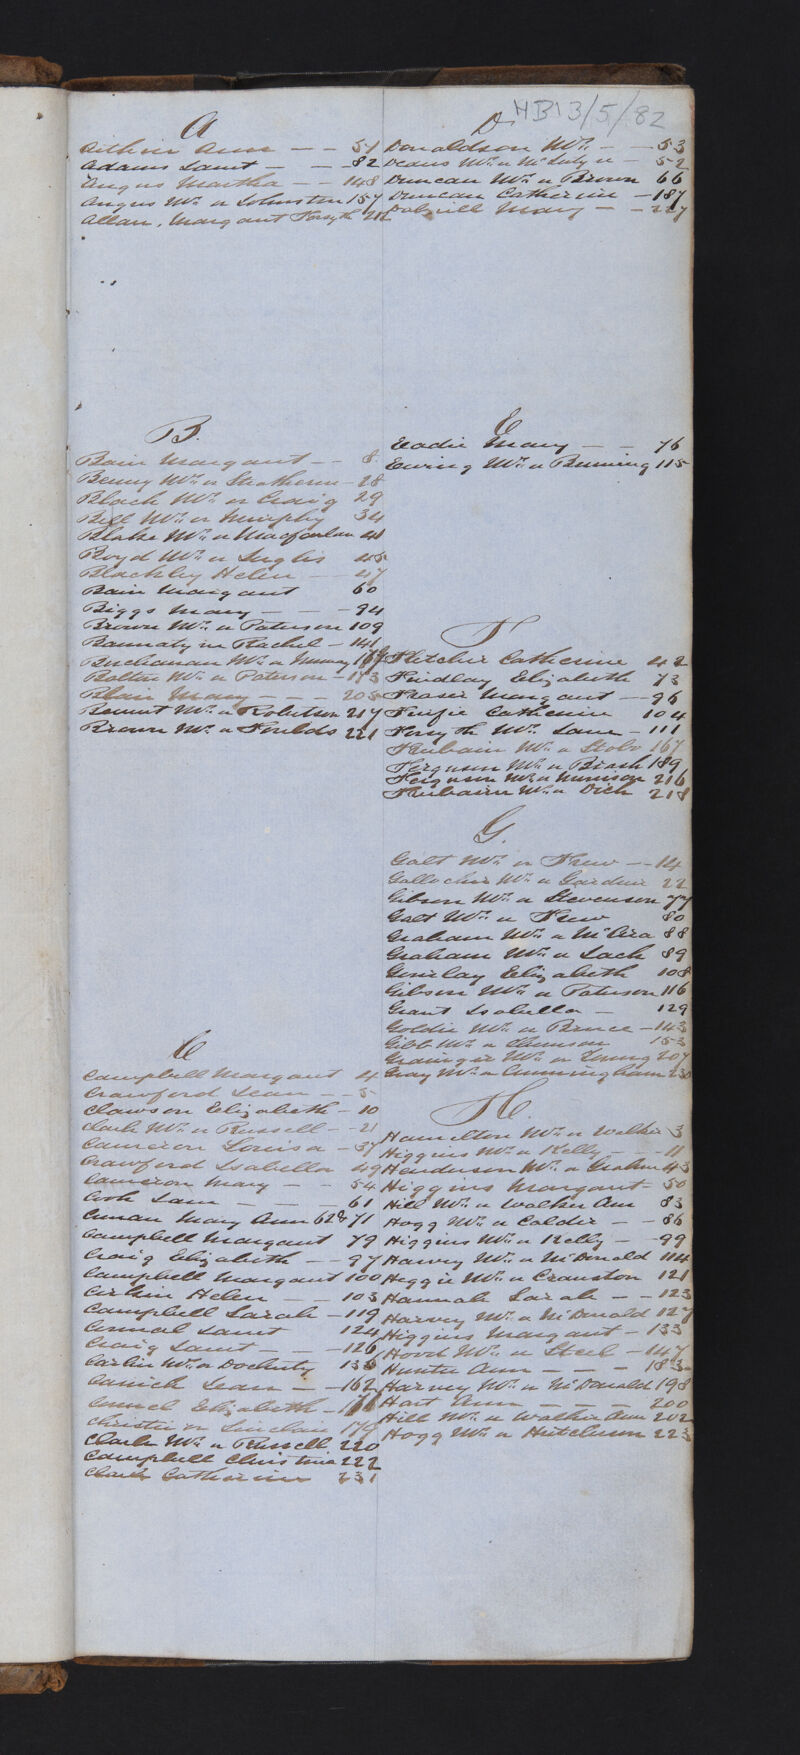 HB13/5/82
A
Aitkin Ann — — 51
Adams Janet — — 82
Angus Martha — — 148
Angus Mrs or Johnston 157
Allan, Margaret Forsyth
B.
Bain Margaret — — 8
Benny Mrs or — 28
Black Mrs or Craig 29
Bell Mrs or Murphy 34
Blake Mrs or Macfarlan 41
Boyd Mrs or Inglis 45
Blackley Helen — 47
Bain Margaret 60
Biggs Mary — — — 94
Brown Mrs or Paterson 109
Bannatyne Rachel — 141
Buchanan Mrs or Murray
Bolton Mrs or Paterson — 173
Blair Mary — — — 205
Bennet Mrs or Robertson 217
Brown Mrs or Foulds 221
C
Campbell Margaret 4
Crawford Jean — — 5
Clawson Elizabeth — 10
Clark Mrs or Russell — — 21
Cameron Louisa — 37
Crawford Isabella 49
Cameron Mary — — 54
Cook Jane — — — 61
Cunan Mary Ann 62 & 71
Campbell Margaret 79
Craig Elizabeth — — 97
Campbell Margaret 100
Helen — — 103
Campbell Sarah — 119
Connal Janet 124
Craig Janet — — — 126
Carlin Mrs or Docherty 135
Jean — — 162
Connel Elizabeth —
Christie or Sinclair 179
Clark Mrs or Russell 220
Campbell Christina 222
Clark Catherine 231
D
Donaldson Mrs — — 53
Deans Mrs or — 52
Duncan Mrs or Brown 66
Duncan Catherine — 187
Dalziell Mary — — 227
E
Eadie Mary — — 76
Ewing Mrs or Binning 115
F
Fletcher Catherine 42
Findlay Elizabeth 73
Fraser Margaret — — 96
Fenfie Catherine 104
Forsyth Mrs Jane — 111
Fairbairn Mrs or Stobo 167
Ferguson Mrs or Brash 189
Ferguson Mrs or Munison 216
Fairbairn Mrs or Dick 218
G.
Galt Mrs or Frew — — 14
Gallocher Mrs or Gardner 22
Gibson Mrs or Stevenson 77
Galt Mrs or Frew 80
Graham Mrs or McCrea 88
Graham Mrs or Jack 89
Gourlay Elizabeth 108
Gibson Mrs or Paterson 116
Grant Isabella — 129
Goldie Mrs or Prince — 143
Gibb Mrs or 153
Grainger Mrs or Young 207
Gray Mrs or Cunningham 230
H.
Hamilton Mrs or Walker 3
Higgins Mrs or Kelly — — 11
Henderson Mrs or Graham 43
Higgins Margaret — 50
Hill Mrs or Walker Ann 83
Hogg Mrs or Caldie — — 86
Higgins Mrs or Kelly — 99
Harvey Mrs or McDonald 114
Heggie Mrs or Cranston 121
Hannah Sarah — — 123
Harvey Mrs or McDonald 127
Higgins Margaret — 133
Hood Mrs or Steel — 147
Hunter Ann — — — 183
Harvey Mrs or McDonald 198
Hart Ann — — — 200
Hill Mrs or Walker Ann 202
Hogg Mrs or Hutchison 223